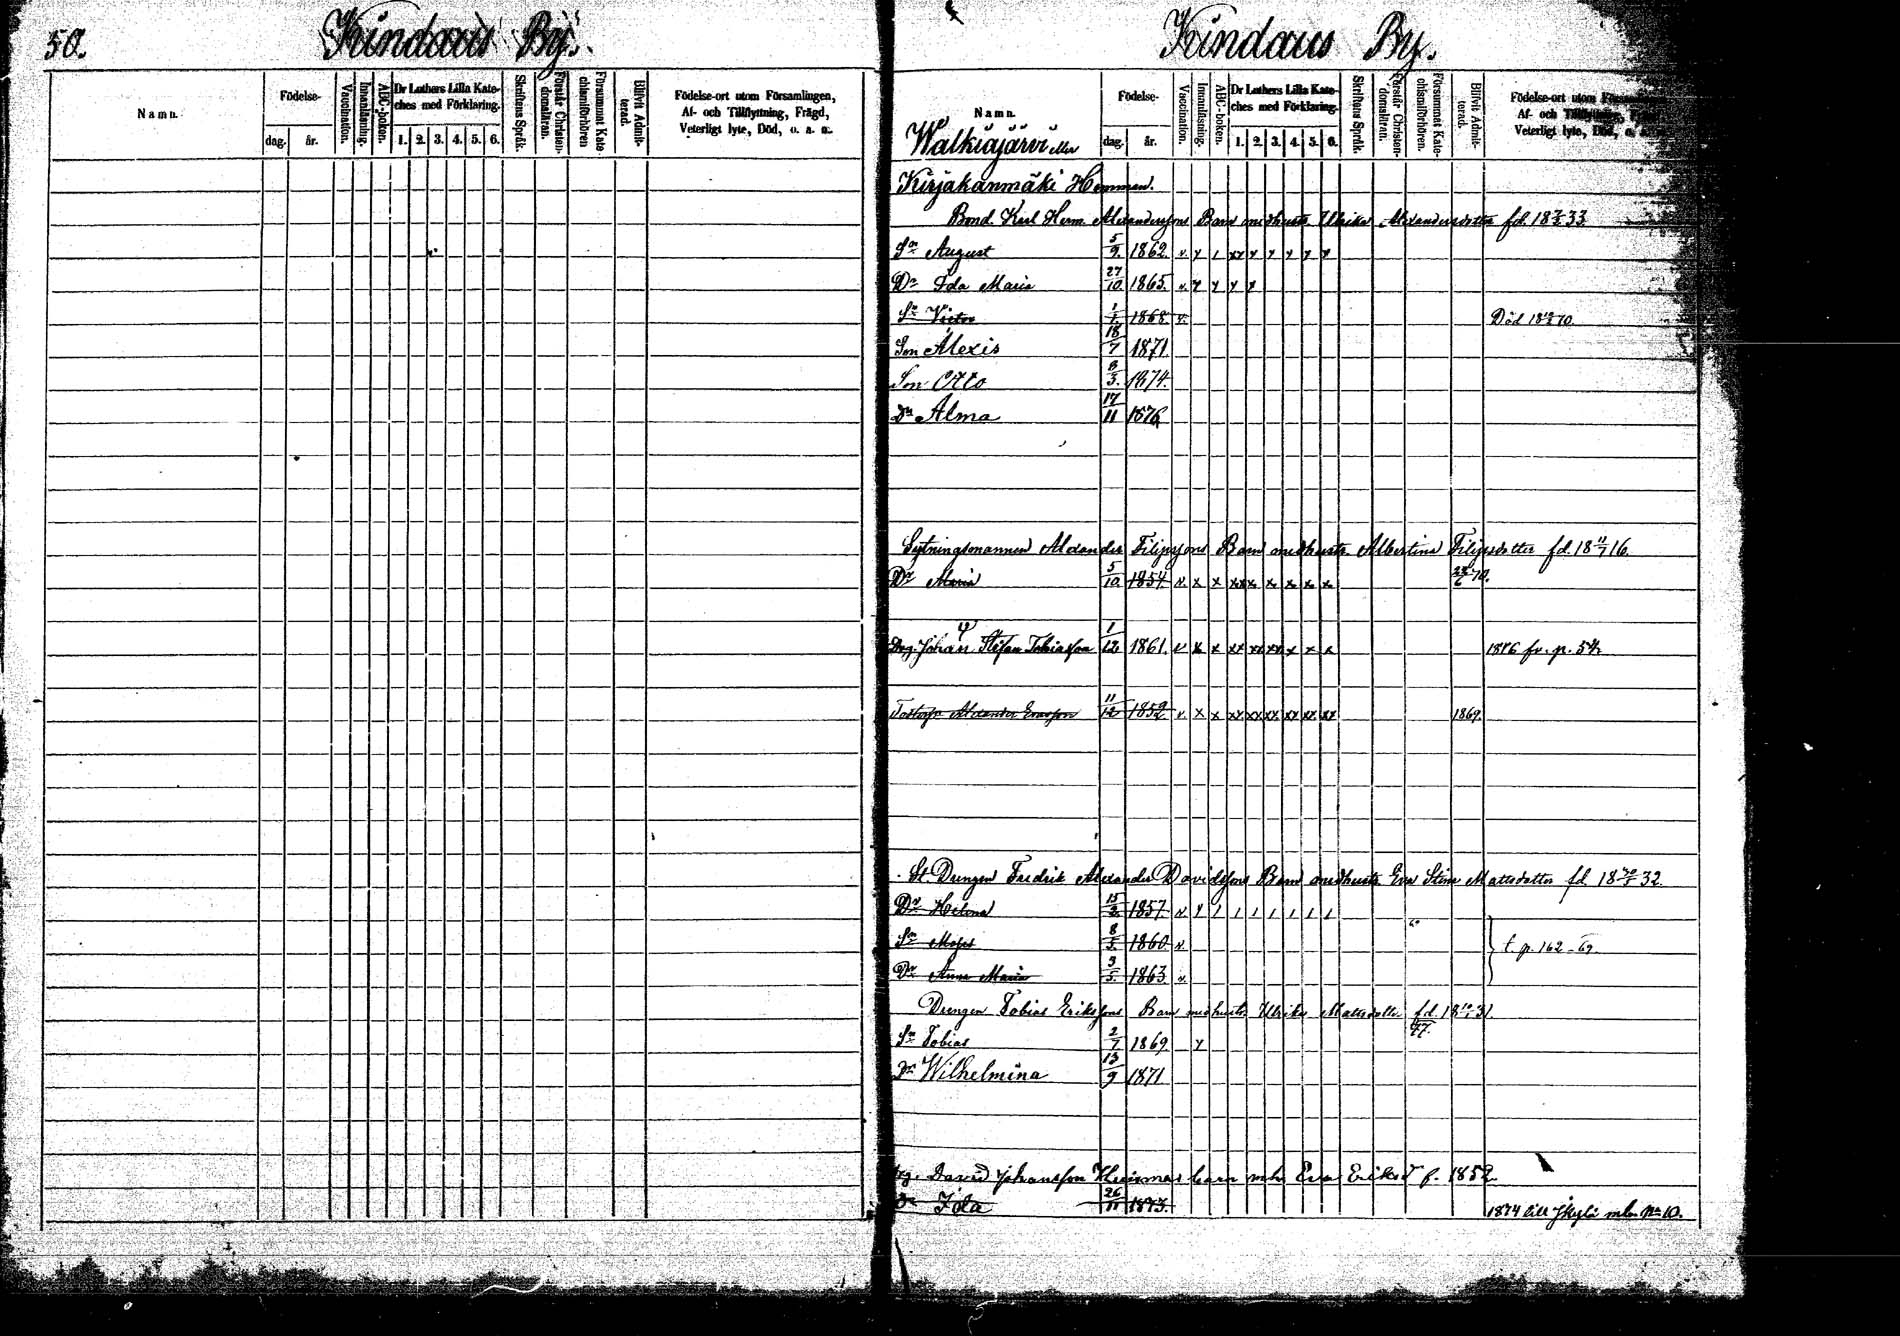 50.
Kindaus By.
Namn.
Födelse-
dag.
år.
Vaccination.
Innanläsning.
ABC-boken.
Dr Luthers Lilla Kate-
ches med Förklaring.
1. 2. 3. 4. 5. 6.
Skriftens Språk.
Förstår Christen-
domsläran.
Försummat Kate-
chismiförhören
Blifvit Admit-
terad.
Födelse-ort utom Församlingen,
Af- och Tillflyttning, Frägd,
Veterligt lyte, Död, o. a. m.
Kindaus By.
Namn.
Födelse-
dag.
år.
Vaccination.
Innanläsning.
ABC-boken.
Dr Luthers Lilla Kate-
ches med Förklaring.
1. 2. 3. 4. 5. 6.
Skriftens Språk.
Förstår Christen-
domsläran.
Försummat Kate-
chismiförhören.
Blifvit Admit-
terad.
Födelse-ort utom
Af- och Tillflyttning,
Veterligt lyte, Död, o. a.
Walkiajärvi eller
Kirjakanmäki Hemman.
Bond. Karl Herm. Alexanderssons Barn medhustr. Ulrika Alexandersdotter fd. 18 33
Sn August 5/9. 1862. v. y 1 xx y y y y y
Dr Ida Maria 27/10 1865. v. y y y y
Sn Victor 1/1. 1868 v. Död 70.
Son Alexis 18/7 1871
Son Otto 8/3. 1874.
Dr Alma 17/11 1876
Sytningsmannen Alexander Filipssons Barn medhustr. Albertina Filipsdotter fd. 18 11/7 16.
Dr Maria 5/10 1854 v. x x xx x x x x x 70.
Drg. Johan Stefan Tobiasson 1/12 1861. v x x xx xx xx x x x 1876 fr. p. 54
Alexander Ersson 11/12 1852 v. x x xx xx xx xx xx xx 1869.
St. Drengen Fredrik Alexander Davidssons Barn medhustr. Eva Stina Mattsdotter fd. 18 32.
Dr Helena 15/2 1857. v. y 1 1 1 1 1 1 1
Sn Moses 8/5. 1860 v. t. p. 162-69.
Dr Anna Maria 3/5. 1863 v.
Drengen Tobias Erikssons Barn medhustr. Ulrika Mattsdotter fd. 18 31.
77.
Sn Tobias 2/7 1869 y
Dr Wilhelmina 13/9 1871
Drg. David Johansson barn mh. Eva Eriksd f. 1852
Dr Ida 26/11 1873. 1874 till No 10.